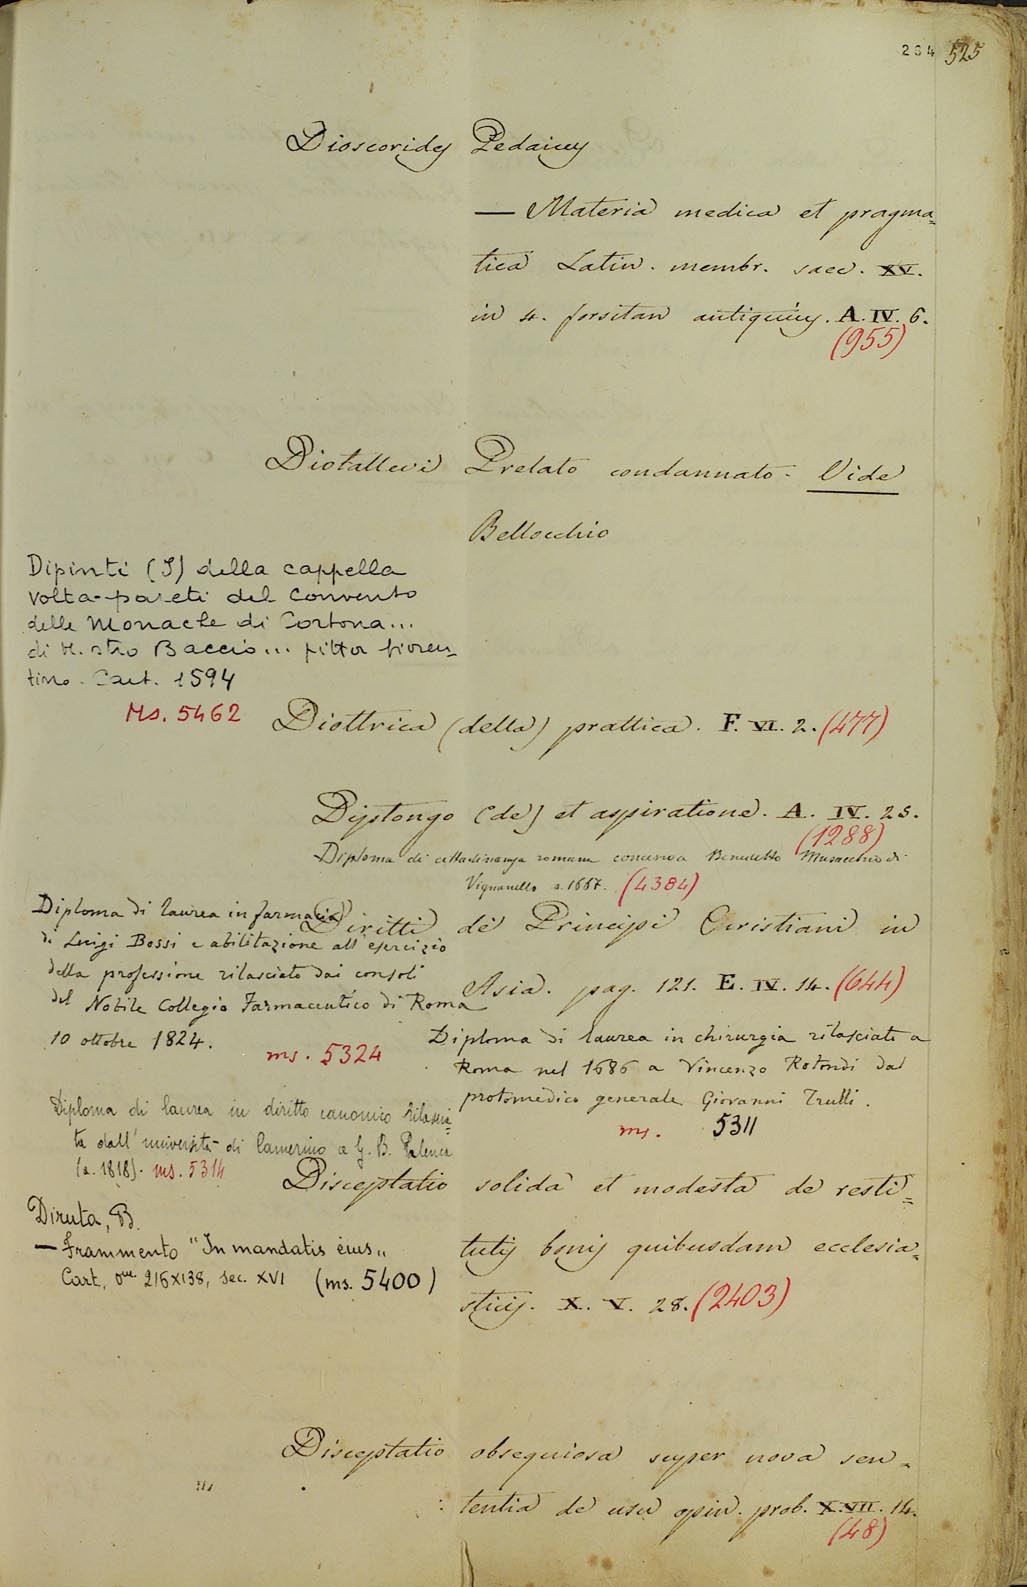 264 525
Dioscorides Pedaicus
— Materia medica et pragma=
tica Latin. membr. saec. XV.
in 4. forsitan antiquius. A. IV. 6.
(955)
Diotallevi Prelato condannato - Vide
Bellocchio
Dipinti (I) della cappella
volta-pareti del Convento
delle Monache di Cortona...
di M.stro Baccio... pittor fioren-
tino. Cart. 1594
Ms. 5462
Diottrica (della) prattica. F. VI. 2. (477)
Diptongo (de) et aspiratione. A. IV. 25.
(1288)
Diploma di cittadinanza romana concesso a Benedetto Musacchio di
Vignanello a. 1667. (4384)
Diploma di laurea in farmacia
di Luigi Bossi e abilitazione all'esercizio
della professione rilasciato dai consoli
del Nobile Collegio Farmaceutico di Roma
10 ottobre 1824.
ms. 5324
Diritti de' Principi Cristiani in
Asia. pag. 121. E. IV. 14. (644)
Diploma di laurea in chirurgia rilasciato a
Roma nel 1686 a Vincenzo Rotondi dal
protomedico generale Giovanni Trulli.
ms. 5311
Diploma di laurea in diritto canonico rilascia=
ta dall'università di Camerino a G. B.
(a. 1818). ms. 5314
Disceptatio solida et modesta de resti=
tutis bonis quibusdam ecclesia=
sticis. X. V. 28. (2403)
Diruta, B.
— Frammento "In mandatis eius„
Cart. 216x138, sec. XVI (ms. 5400)
Disceptatio obsequiosa super nova sen=
tentia de usu opin. prob. X. VII. 14.
(48)